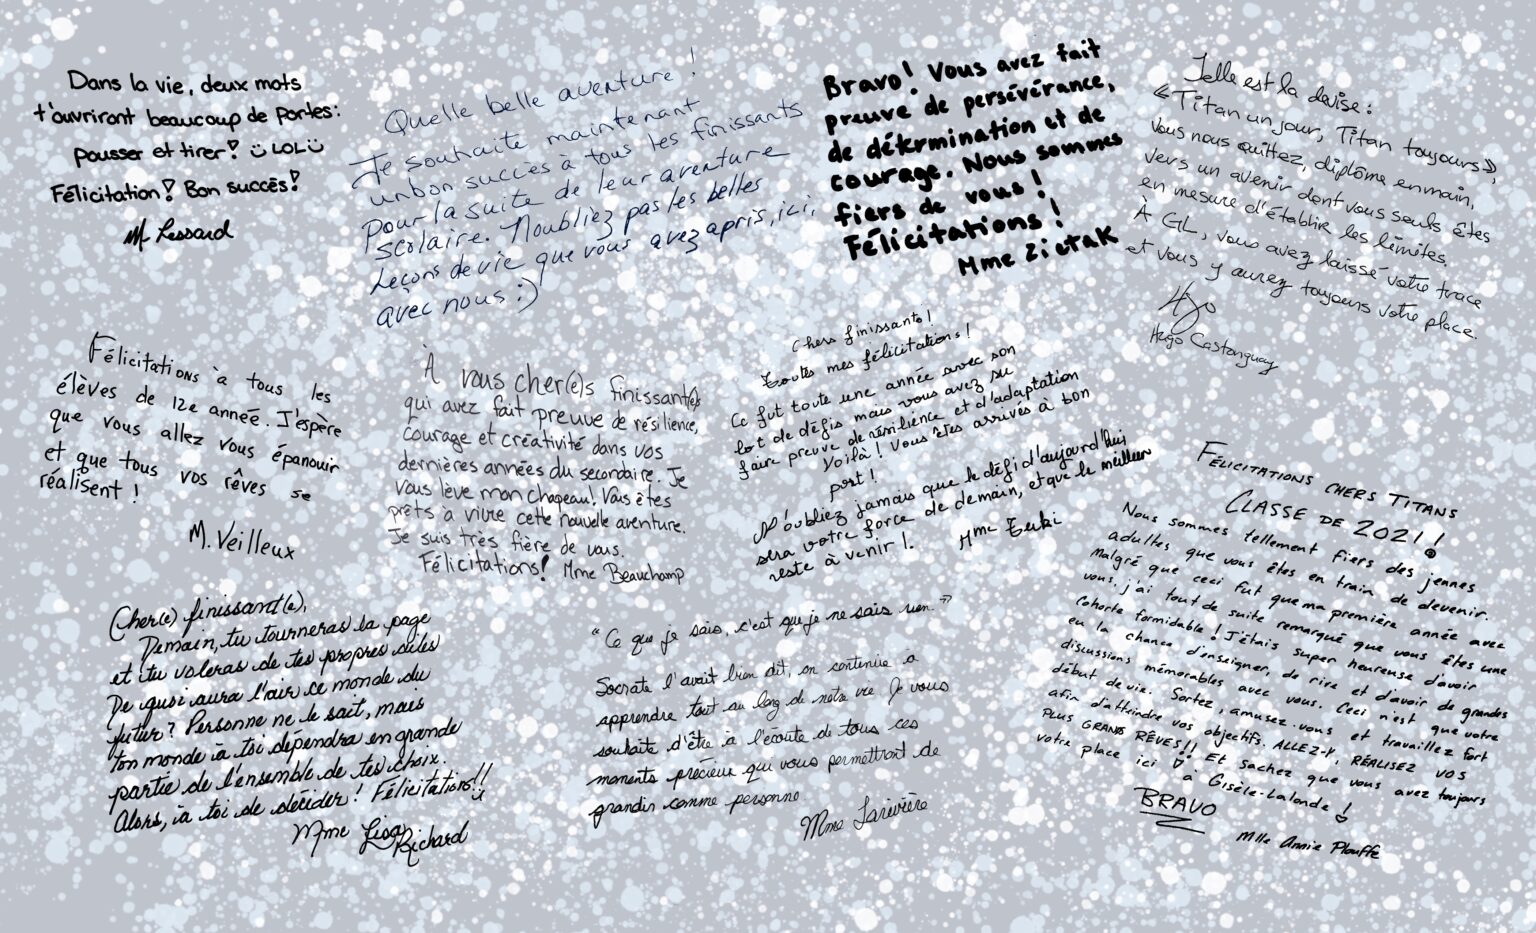 Dans la vie, deux mots
t'ouvriront beaucoup de portes:
pousser et tirer! ü LOL ü
Félicitation! Bon succès!
M. Lessard
Quelle belle aventure !
Je souhaite maintenant
un bon succès à tous les finissants
Pour la suite de leur aventure
scolaire. N'oubliez pas les belles
Leçons de vie que vous avez apris, ici,
avec nous :)
Bravo! Vous avez fait
preuve de persévérance,
de détermination et de
courage. Nous sommes
fiers de vous !
Félicitations !
Mme Zietak
Telle est la devise :
« Titan un jour, Titan toujours »,
Vous nous quittez, diplôme en main,
vers un avenir dont vous seuls êtes
en mesure d'établir les limites.
À GL, vous avez laissé votre trace
et vous y aurez toujours votre place.
Hugo
Hugo Castonguay
Félicitations à tous les
élèves de 12e année. J'espère
que vous allez vous épanouir
et que tous vos rêves se
réalisent !
M. Veilleux
À vous cher(e)s finissant(e)s
qui avez fait preuve de résilience,
courage et créativité dans vos
dernières années du secondaire. Je
vous lève mon chapeau! Vous êtes
prêts à vivre cette nouvelle aventure.
Je suis très fière de vous.
Félicitations! Mme Beauchamp
Chers finissants !
Toutes mes félicitations !
Ce fut toute une année avec son
lot de défis mais vous avez su
faire preuve de résilience et d'adaptation
Voilà ! Vous êtes arrivés à bon
port !
N'oubliez jamais que le défi d'aujourd'hui
sera votre force de demain, et que le meilleur
reste à venir !
Mme
Félicitations chers Titans
Classe de 2021!!
Nous sommes tellement fiers des jeunes
adultes que vous êtes en train de devenir.
Malgré que ceci fut que ma première année avec
vous, j'ai tout de suite remarqué que vous êtes une
cohorte formidable ! J'étais super heureuse d'avoir
eu la chance d'enseigner, de rire et d'avoir de grandes
discussions mémorables avec vous. Ceci n'est que votre
début de vie. Sortez, amusez-vous et travaillez fort
afin d'atteindre vos objectifs. ALLEZ-Y, RÉALISEZ VOS
PLUS GRANDS RÊVES!! Et sachez que vous avez toujours
votre place ici à Gisèle-Lalonde !
BRAVO
Mlle Annie Plouffe
Cher(e) finissant(e),
Demain, tu tourneras la page
et tu voleras de tes propres ailes
De quoi aura l'air ce monde du
futur? Personne ne le sait, mais
ton monde à toi dépendra en grande
partie de l'ensemble de tes choix.
Alors, à toi de décider! Félicitations!!
Mme Lisa
Richard
" Ce que je sais, c'est que je ne sais rien. "
Socrate l'avait bien dit, on continue à
apprendre tout au long de notre vie. Je vous
souhaite d'être à l'écoute de tous ces
moments précieux qui vous permettront de
grandir comme personne.
Mme Larivière